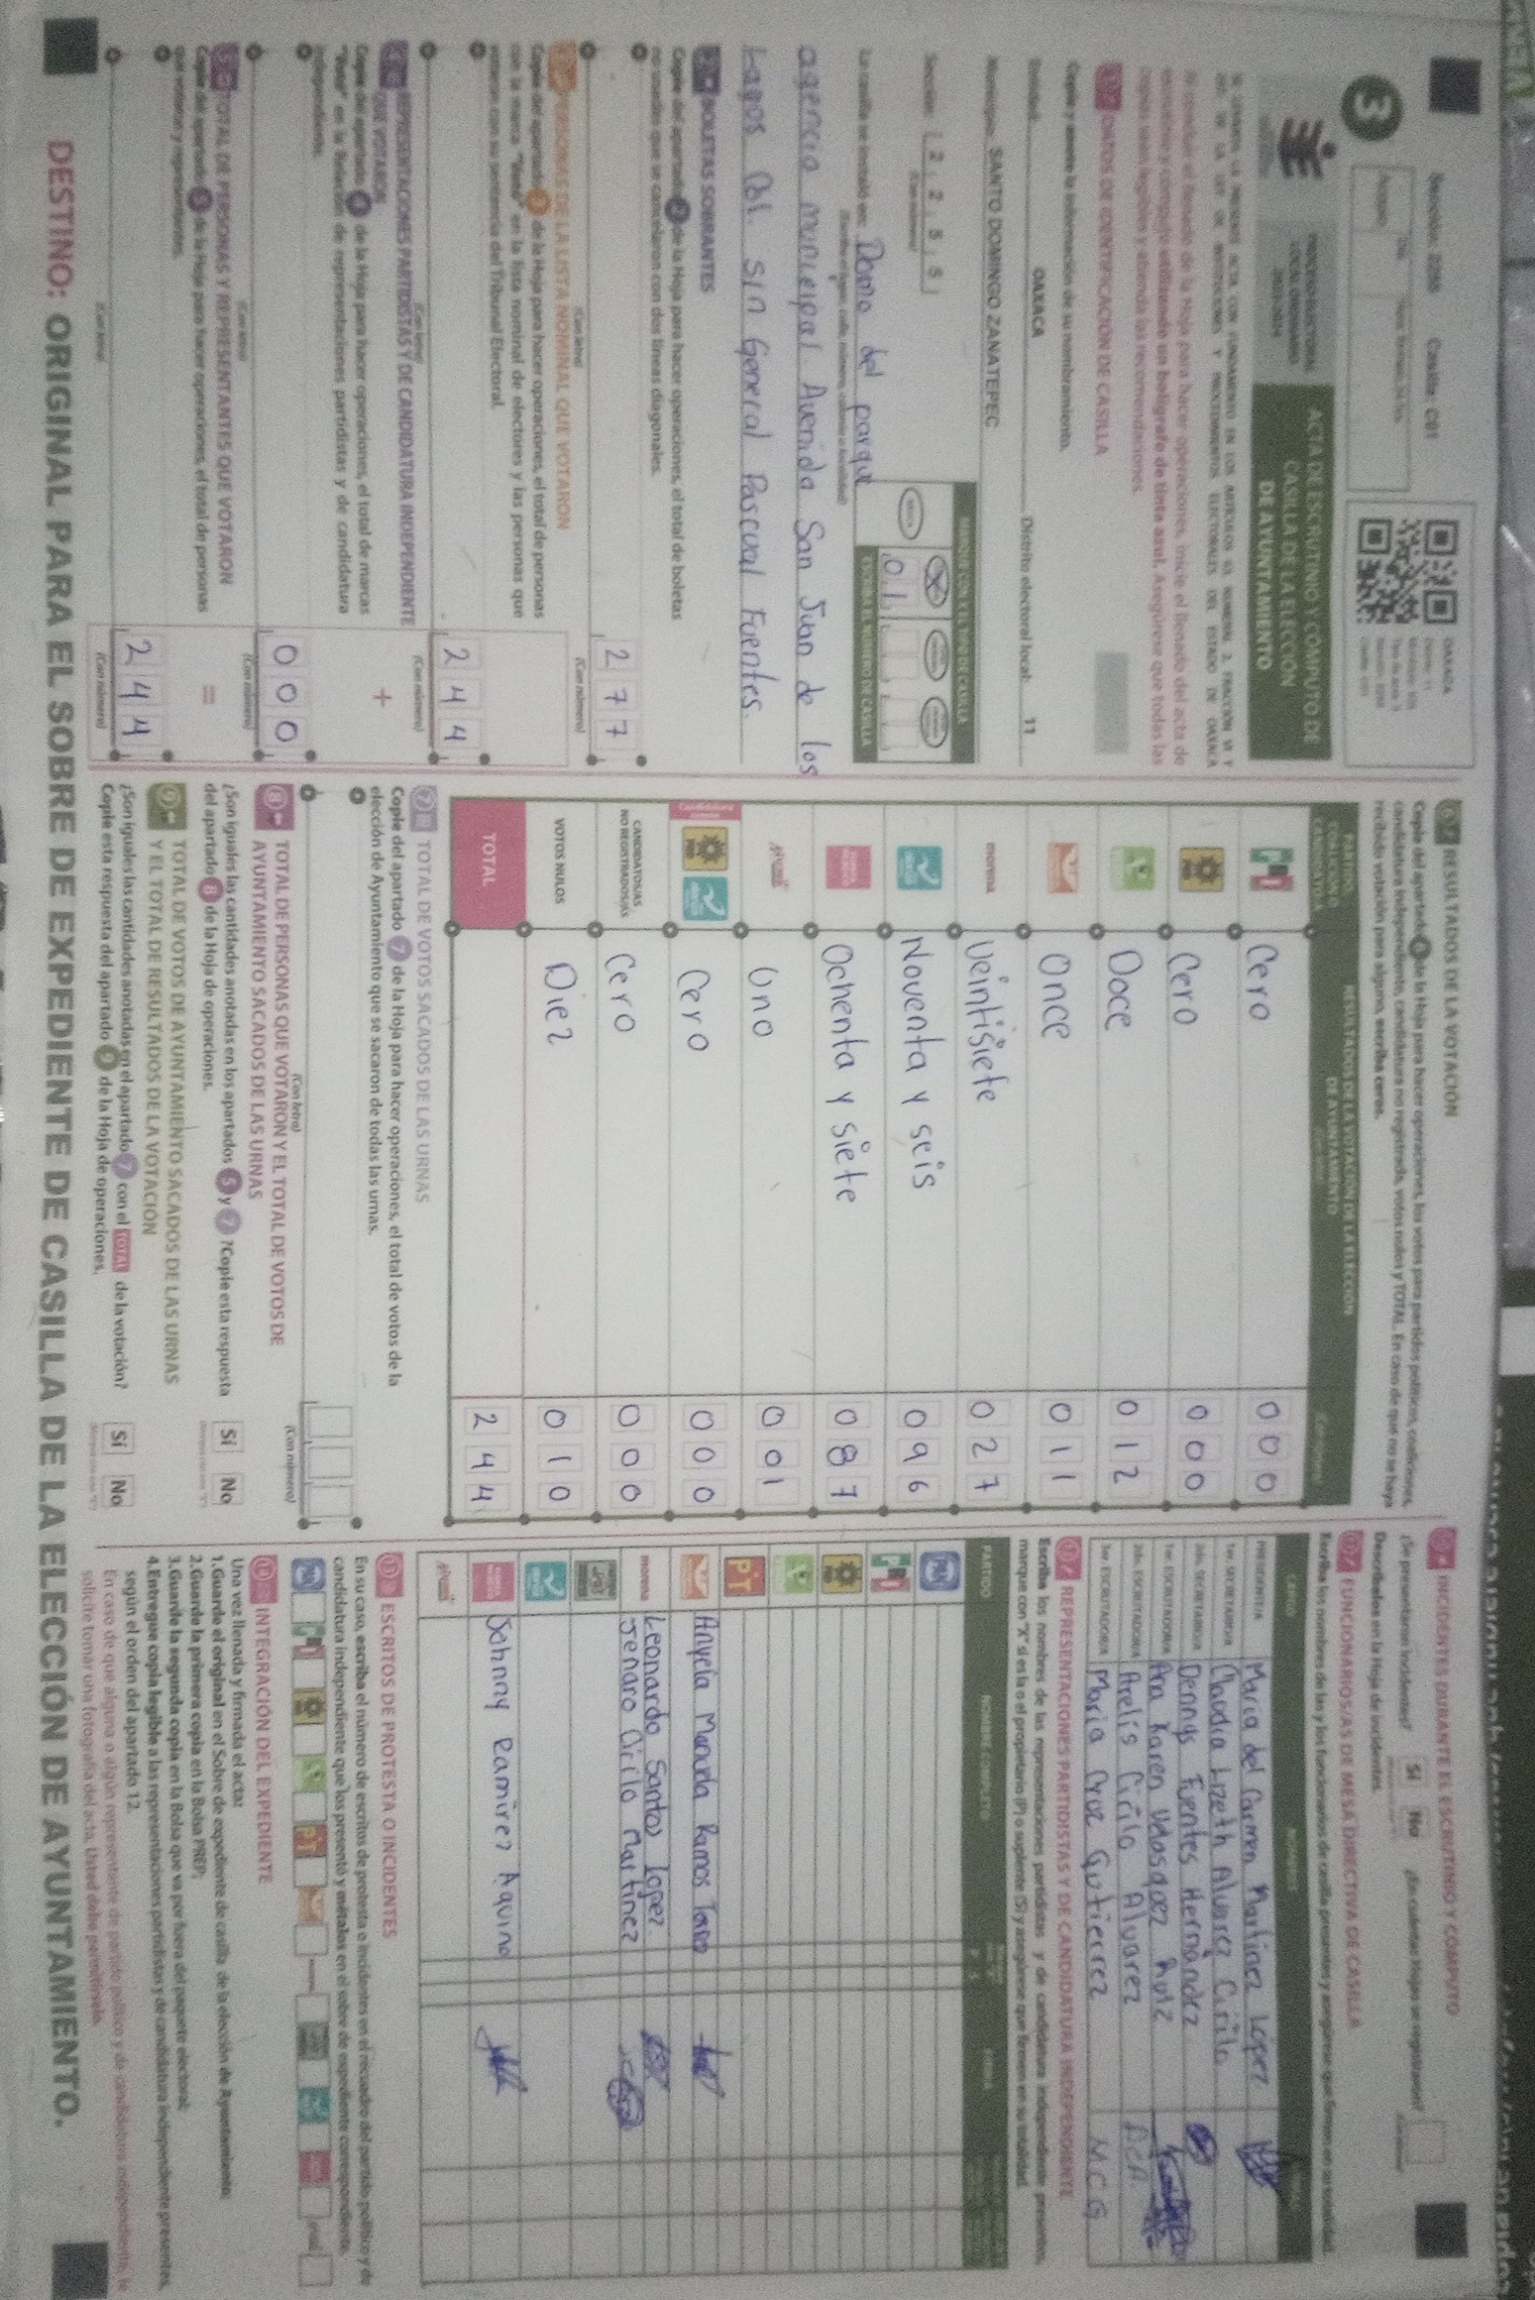 Sección: 2255 Casilla: C01
3
PROCESO ELECTORAL
LOCAL ORDINARIO
2023-2024
ACTA DE ESCRUTINIO Y CÓMPUTO DE
CASILLA DE LA ELECCIÓN
DE AYUNTAMIENTO
OAXACA
Al concluir el llenado de la Hoja para hacer operaciones, inicie el llenado del acta de
escrutinio y cómputo utilizando un bolígrafo de tinta azul. Asegúrese que todas las
copias sean legibles y atienda las recomendaciones.
1 DATOS DE IDENTIFICACIÓN DE CASILLA
Copie y anote la información de su nombramiento.
Entidad: OAXACA Distrito electoral local: 11
Municipio: SANTO DOMINGO ZANATEPEC
Sección: 2 2 5 5
MARQUE CON X EL TIPO DE CASILLA
ESCRIBA EL NÚMERO DE CASILLA
01
La casilla se instaló en: Domo del parque
agencia municipal Avenida San Juan de los
Lagos Col. Sin General Pascual Fuentes.
2 BOLETAS SOBRANTES
Copie del apartado 2 de la Hoja para hacer operaciones, el total de boletas
no usadas que se cancelaron con dos líneas diagonales.
277
(Con letra) (Con número)
3 PERSONAS DE LA LISTA NOMINAL QUE VOTARON
Copie del apartado 3 de la Hoja para hacer operaciones, el total de personas
con la marca "Votó" en la lista nominal de electores y las personas que
votaron con su sentencia del Tribunal Electoral.
244
(Con letra) (Con número)
4 REPRESENTACIONES PARTIDISTAS Y DE CANDIDATURA INDEPENDIENTE
QUE VOTARON
+
Copie del apartado 4 de la Hoja para hacer operaciones, el total de marcas
"Votó" en la Relación de representaciones partidistas y de candidatura
independiente.
000
(Con letra) (Con número)
5 TOTAL DE PERSONAS Y REPRESENTANTES QUE VOTARON
=
Copie del apartado 5 de la Hoja para hacer operaciones, el total de personas
que votaron y representantes.
244
(Con letra) (Con número)
6 RESULTADOS DE LA VOTACIÓN
Copie del apartado 6 de la Hoja para hacer operaciones, los votos para partidos políticos, coaliciones,
candidatura independiente, candidatura no registrada, votos nulos y TOTAL. En caso de que no se haya
recibido votación para alguno, escriba ceros.
RESULTADOS DE LA VOTACIÓN DE LA ELECCIÓN
DE AYUNTAMIENTO
Cero 000
Cero 000
Doce 012
Once 011
morena Veintisiete 027
Noventa y seis 096
Ochenta y siete 087
Uno 001
Cero 000
CANDIDATOS/AS
NO REGISTRADOS/AS Cero 000
VOTOS NULOS Diez 010
TOTAL 244
7 TOTAL DE VOTOS SACADOS DE LAS URNAS
Copie del apartado 7 de la Hoja para hacer operaciones, el total de votos de la
elección de Ayuntamiento que se sacaron de todas las urnas.
(Con letra) (Con número)
8 TOTAL DE PERSONAS QUE VOTARON Y EL TOTAL DE VOTOS DE
AYUNTAMIENTO SACADOS DE LAS URNAS
¿Son iguales las cantidades anotadas en los apartados 5 y 7? Copie esta respuesta
del apartado 8 de la Hoja de operaciones.
Sí No
9 TOTAL DE VOTOS DE AYUNTAMIENTO SACADOS DE LAS URNAS
Y EL TOTAL DE RESULTADOS DE LA VOTACIÓN
¿Son iguales las cantidades anotadas en el apartado 7 con el TOTAL de la votación?
Copie esta respuesta del apartado 9 de la Hoja de operaciones.
Sí No
10 INCIDENTES DURANTE EL ESCRUTINIO Y CÓMPUTO
¿Se presentaron incidentes? Sí No ¿En cuántas Hojas se registraron?
Descríbalos en la Hoja de incidentes.
11 FUNCIONARIOS/AS DE MESA DIRECTIVA DE CASILLA
Escriba los nombres de las y los funcionarios de casilla presentes y asegúrese que firmen en su totalidad.
CARGO NOMBRE
PRESIDENTE/A Maria del Carmen Martinez Lopez
1er. SECRETARIO/A Claudia Lizeth Alvarez Cirilo
2do. SECRETARIO/A Dennys Fuentes Hernandez
1er. ESCRUTADOR/A Ana Karen Velasquez Ruiz
2do. ESCRUTADOR/A Arelis Cirilo Alvarez ACA
3er. ESCRUTADOR/A Maria Cruz Gutierrez MCG
12 REPRESENTACIONES PARTIDISTAS Y DE CANDIDATURA INDEPENDIENTE
Escriba los nombres de las representaciones partidistas y de candidatura independiente presentes,
marque con "X" si es la o el propietario (P) o suplente (S) y asegúrese que firmen en su totalidad.
PARTIDO NOMBRE COMPLETO
PAN
PRI
PRD
PT
Anyela Manuela Ramos
morena Leonardo Santos lopez
Jenaro Cirilo Martinez
Johnny Ramirez Aquino
13 ESCRITOS DE PROTESTA O INCIDENTES
En su caso, escriba el número de escritos de protesta o incidentes en el recuadro del partido político y de
candidatura independiente que los presentó y métalos en el sobre de expediente correspondiente.
14 INTEGRACIÓN DEL EXPEDIENTE
Una vez llenada y firmada el acta:
1.Guarde el original en el Sobre de expediente de casilla de la elección de Ayuntamiento;
2.Guarde la primera copia en la Bolsa PREP;
3.Guarde la segunda copia en la Bolsa que va por fuera del paquete electoral;
4.Entregue copia legible a las representaciones partidistas y de candidatura independiente presentes,
según el orden del apartado 12.
En caso de que alguna o algún representante de partido político y de candidatura independiente, le
solicite tomar una fotografía del acta, Usted debe permitírselo.
DESTINO: ORIGINAL PARA EL SOBRE DE EXPEDIENTE DE CASILLA DE LA ELECCIÓN DE AYUNTAMIENTO.